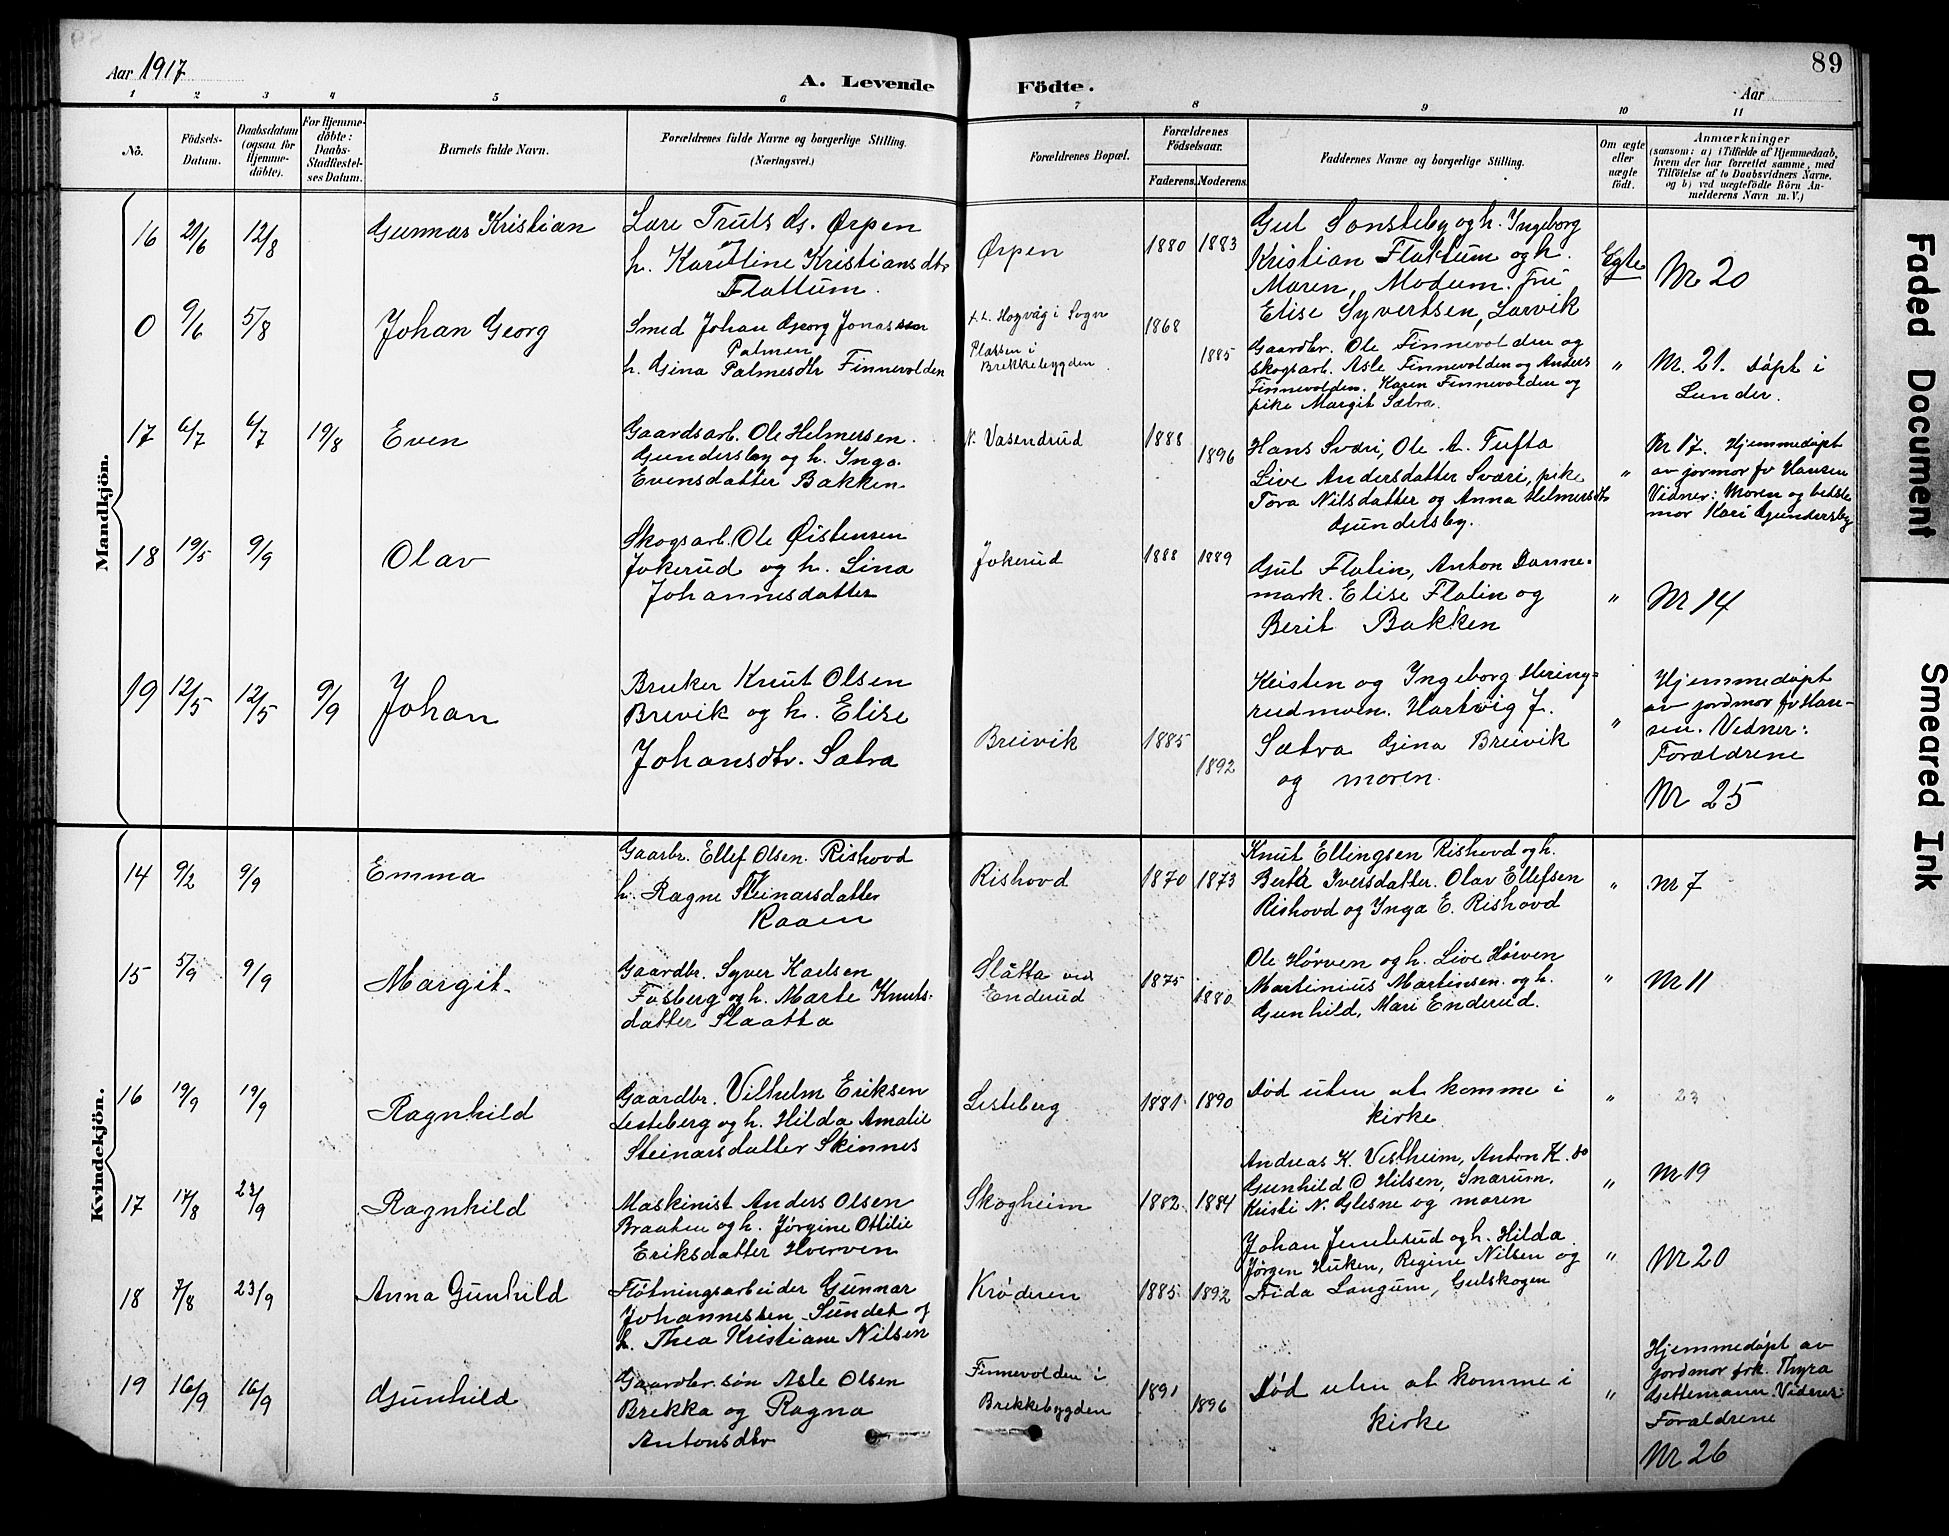 89
Aar 1917
A. Levende Födte.
Aar
1 2 3 4 5 6 7 8 9 10 11
No.
Födsels-
Datum.
Daabsdatum
(ogsaa for
Hjemme-
döbte).
For Hjemme-
döbte:
Daabs-
Stadfæstel-
ses Datum.
Barnets fulde Navn.
Forældrenes fulde Navne og borgerlige Stilling.
(Næringsvei.)
Forældrenes Bopæl.
Forældrenes
Födselsaar.
Faderens. Moderens.
Faddernes Navne og borgerlige Stilling.
Om ægte
eller
uægte
födt.
Anmærkninger
(saasom: a) i Tilfælde af Hjemmedaab,
hvem der har forrettet samme, med
Tilföielse af to Daabsvidners Navne,
og b) ved uægtefödte Börn An-
melderens Navn m. V.)
Mandkjön.
16 21/6 12/8
Gunnar Kristian
Lars Truls G. Ørpen
h. Karoline Kristiansdtr
Flattum.
Ørpen
1880 1883
Gul Sonsteby og h. Ingeborg
Kristian Flattum og h.
Maren, Modum. Fru
Elise Syvertsen, Larvik
Egte
Nr 20
0 9/6 5/8
Johan Georg
Smed Johan Georg Jonassen
Palmen
h. Gina Palmesdtr Finnevolden
Hogvåg i Sogn
Plassen i
Brekkebygden
1868
1885
Gaardbr. Ole Finnevolden og
skogsarb. Asle Finnevolden og Anders
Finnevolden. Karen Finnevolden og
pike Margit Sætra.
"
Nr. 21. døpt i
Lunder.
17 6/7 6/7 19/8
Even
Gaardsarb. Ole Helmersen
Gundersby og h. Inga
Evensdatter Bakken.
N. Vasendrud
1888
1896
Hans Sværi, Ole A. Tufta
Live Andersdatter Sværi, pike
Tora Nilsdatter og Anna Helmersdt
Gundersby.
"
Nr 17. Hjemmedøpt
av jormor fv Hansen
Vidner: Moren og bedste
mor Kari Gundersby
18 19/5 9/9
Olav
Skogsarb. Ole Øistensen
Jokerud og h. Lina
Johannesdatter
Jokerud
1888 1889
Gul Flatin, Anton Danne-
mark. Elise Flatin og
Berit Bakken
"
Nr 14
19 12/5 12/5 9/9
Johan
Bruker Knut Olsen
Brevik og h. Elise
Johansdtr. Sætra
Breivik
1885
1892
Kristen og Ingeborg Hering-
rudmoen. Hartvig J.
Sætra Gina Breivik
og moren.
"
Hjemmedøpt
av jordmor fv Han-
sen. Vidner:
Forældrene
Nr 25
Kvindekjön.
14 9/2 9/9
Emma
Gaarbr. Ellef Olsen Rishovd
h. Ragne Steinarsdatter
Raaen
Rishovd
1870 1873
Knut Ellingsen Rishovd og h.
Berta Iversdatter. Olav Ellefsen
Rishovd og Inga E. Rishovd
"
Nr 7
15 5/9 9/9
Margit
Gaardbr. Syver Karlsen
Fosberg og h. Marte Knuts-
datter Slaatta
Slåtta ved
Enderud
1875
1880
Ole Hørven og h. Live Hørven
Martinius Martinsen og h.
Gunhild, Mari Enderud.
"
Nr 11
16 19/9 19/9
Ragnhild
Gaardbr. Vilhelm Eriksen
Lesteberg og h. Hilda Amalie
Steinarsdatter Skinnes
Lesteberg
1881 1890
Død uten at komme i
kirke
"
23
17 17/8 23/9
Ragnhild
Maskinist Anders Olsen
Braaten og h. Jørgine Ottilie
Eriksdatter Hverven
Skogheim
1882 1884
Andreas K. Vestheim, Anton K. do
Gunhild O Hilsen, Snarum,
Kristi N. Glesne og moren
"
Nr 19
18 7/8 23/9
Anna Gunhild
Fløtningsarbeider Gunnar
Johannessen Sundet og
h. Thea Kristiane Nilsen
Krøderen
1885 1892
Johan Jemterud og h. Hilda
Jørgen Huken, Regine Nilsen og
Frida Langum, Gulskogen
"
Nr 20
19 16/9 16/9
Gunhild
Gaardbr.søn Asle Olsen
Brekka og Ragna
Antonsdtr
Finnevolden i
Brekkebygden
1891
1896
Død uten at komme i
kirke
"
Hjemmedøpt av
jordmor frk. Thyra
Gettemann Vidner:
Forældrene
Nr 26
Faded Document
Smeared Ink